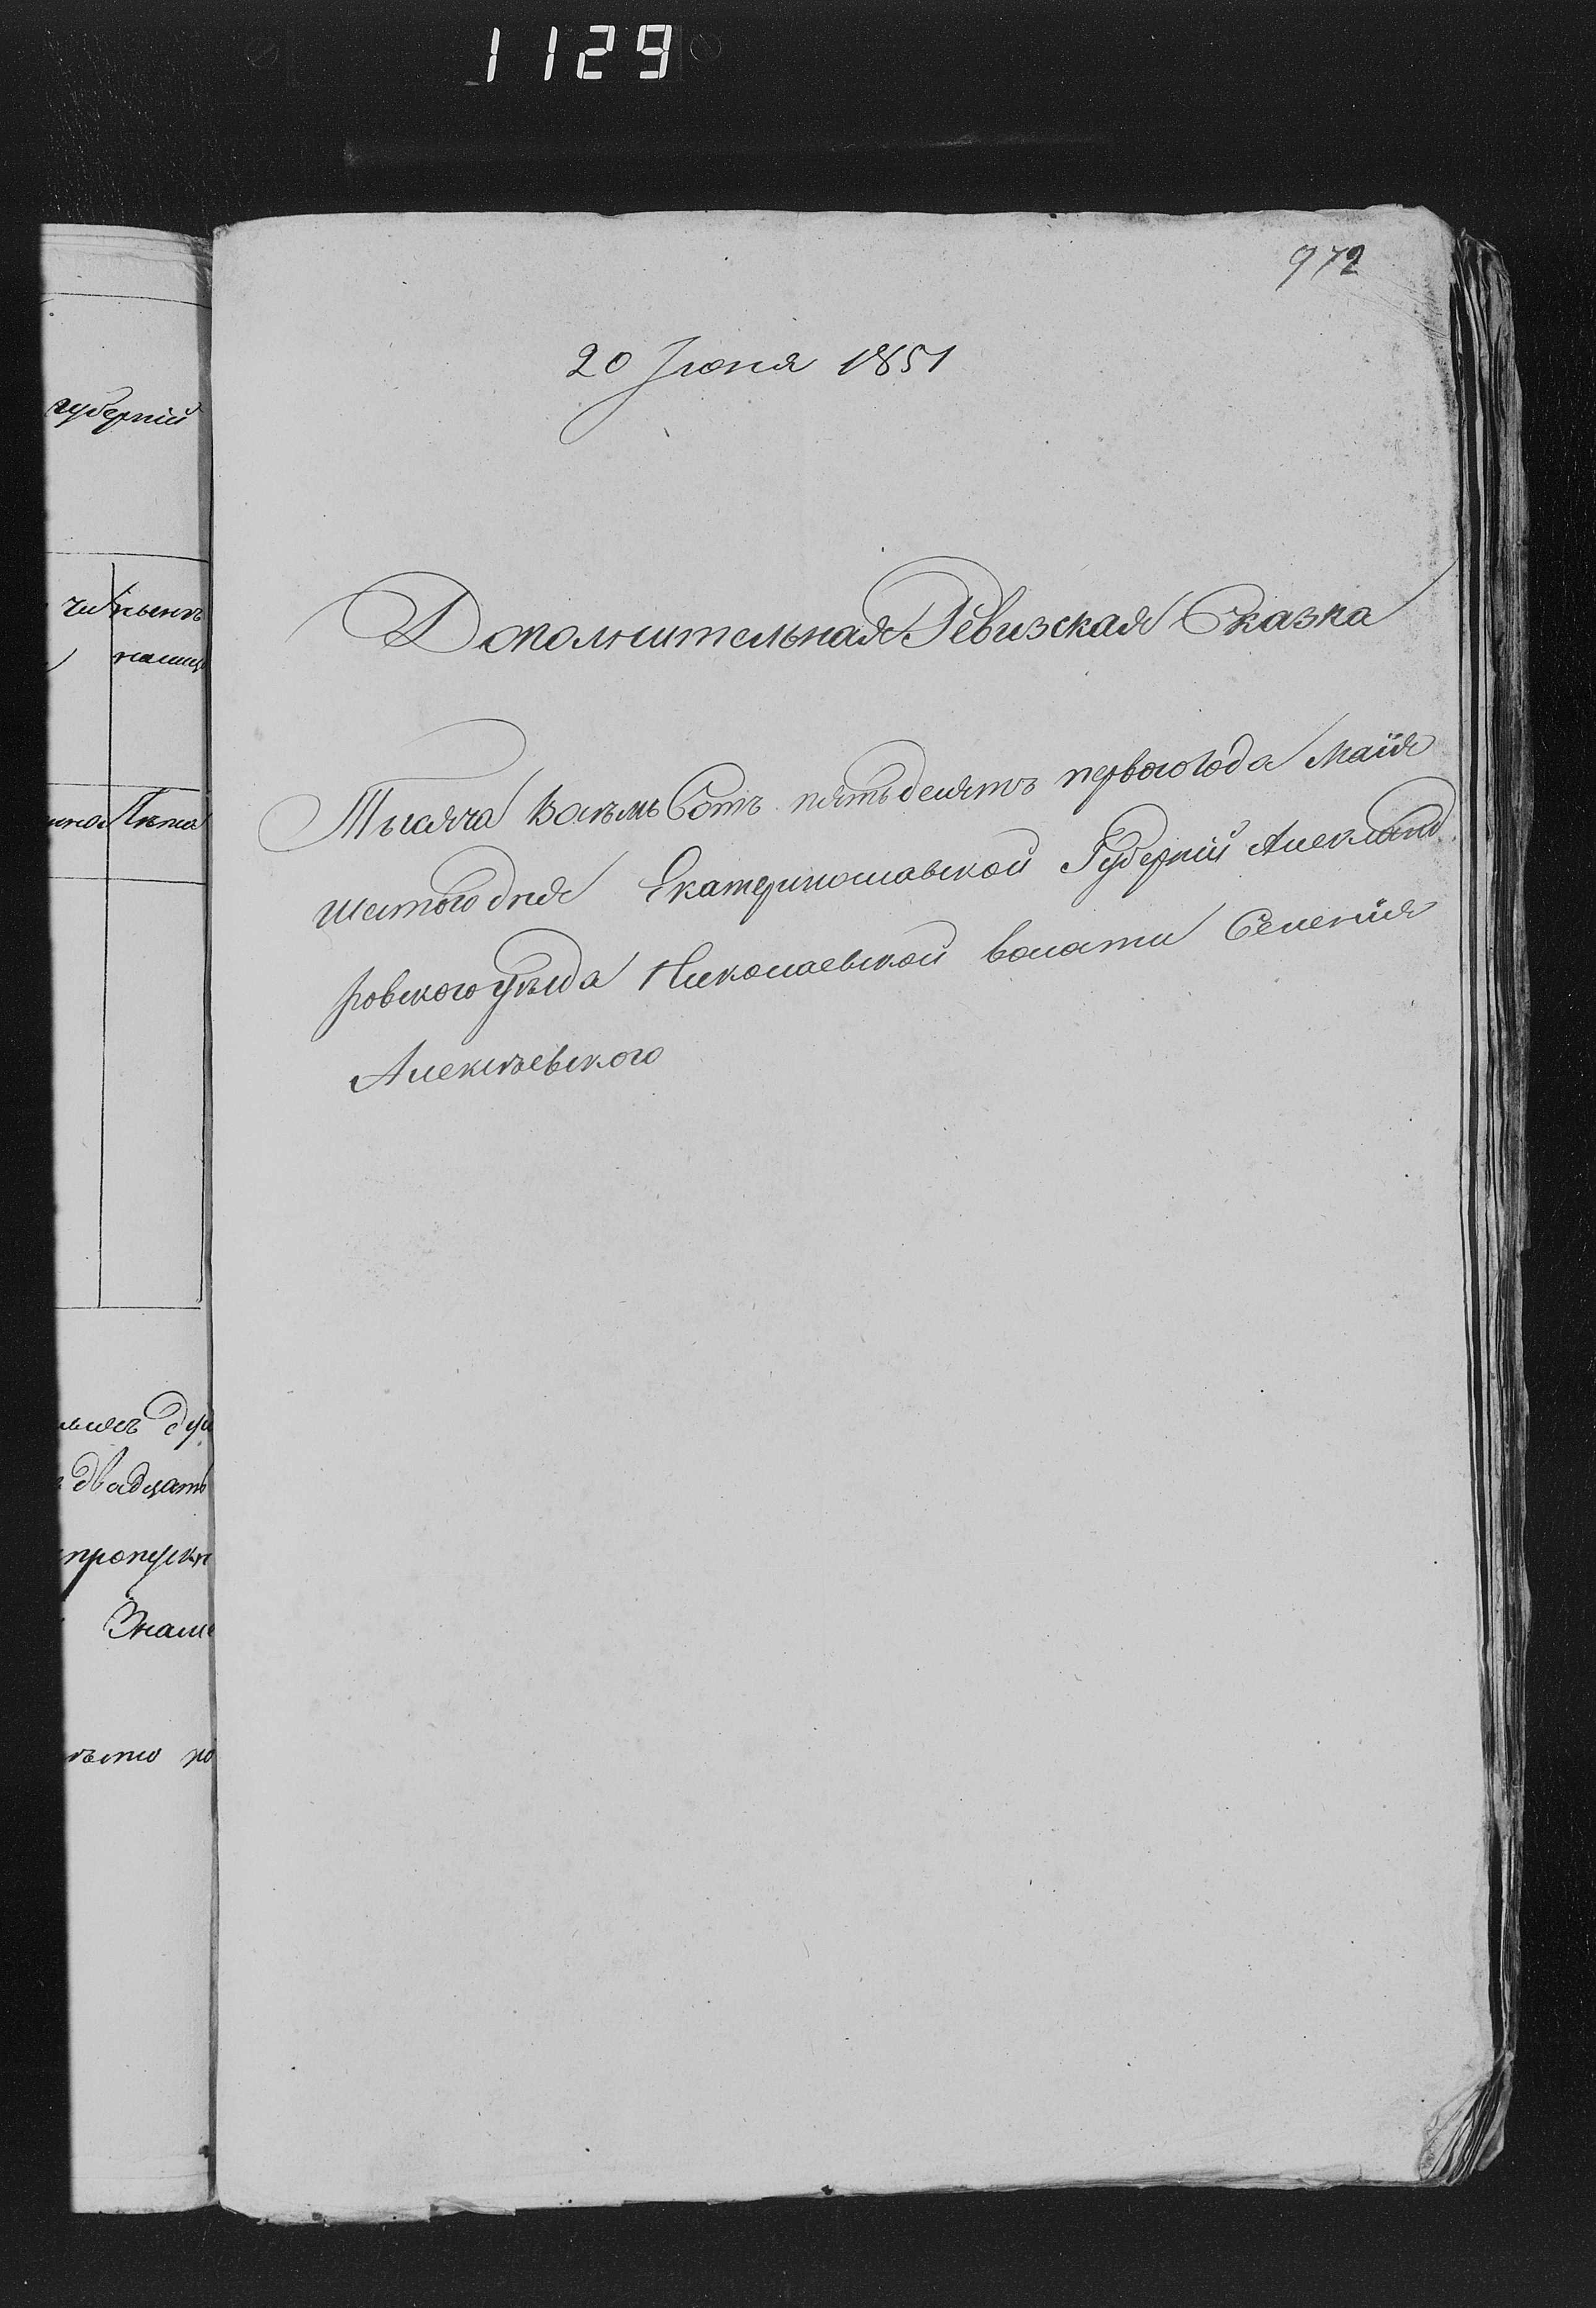 1129
972
20 Іюня 1851
Дополнительная Ревизская Сказка
Тысяча восемь Сотъ пятьдесятъ первого года Маія
шестого дня Екатеринославской Губерніи Александ
ровского уѣзда Николаевской волости Селенія
Алексѣевского
губерніи
двадцать